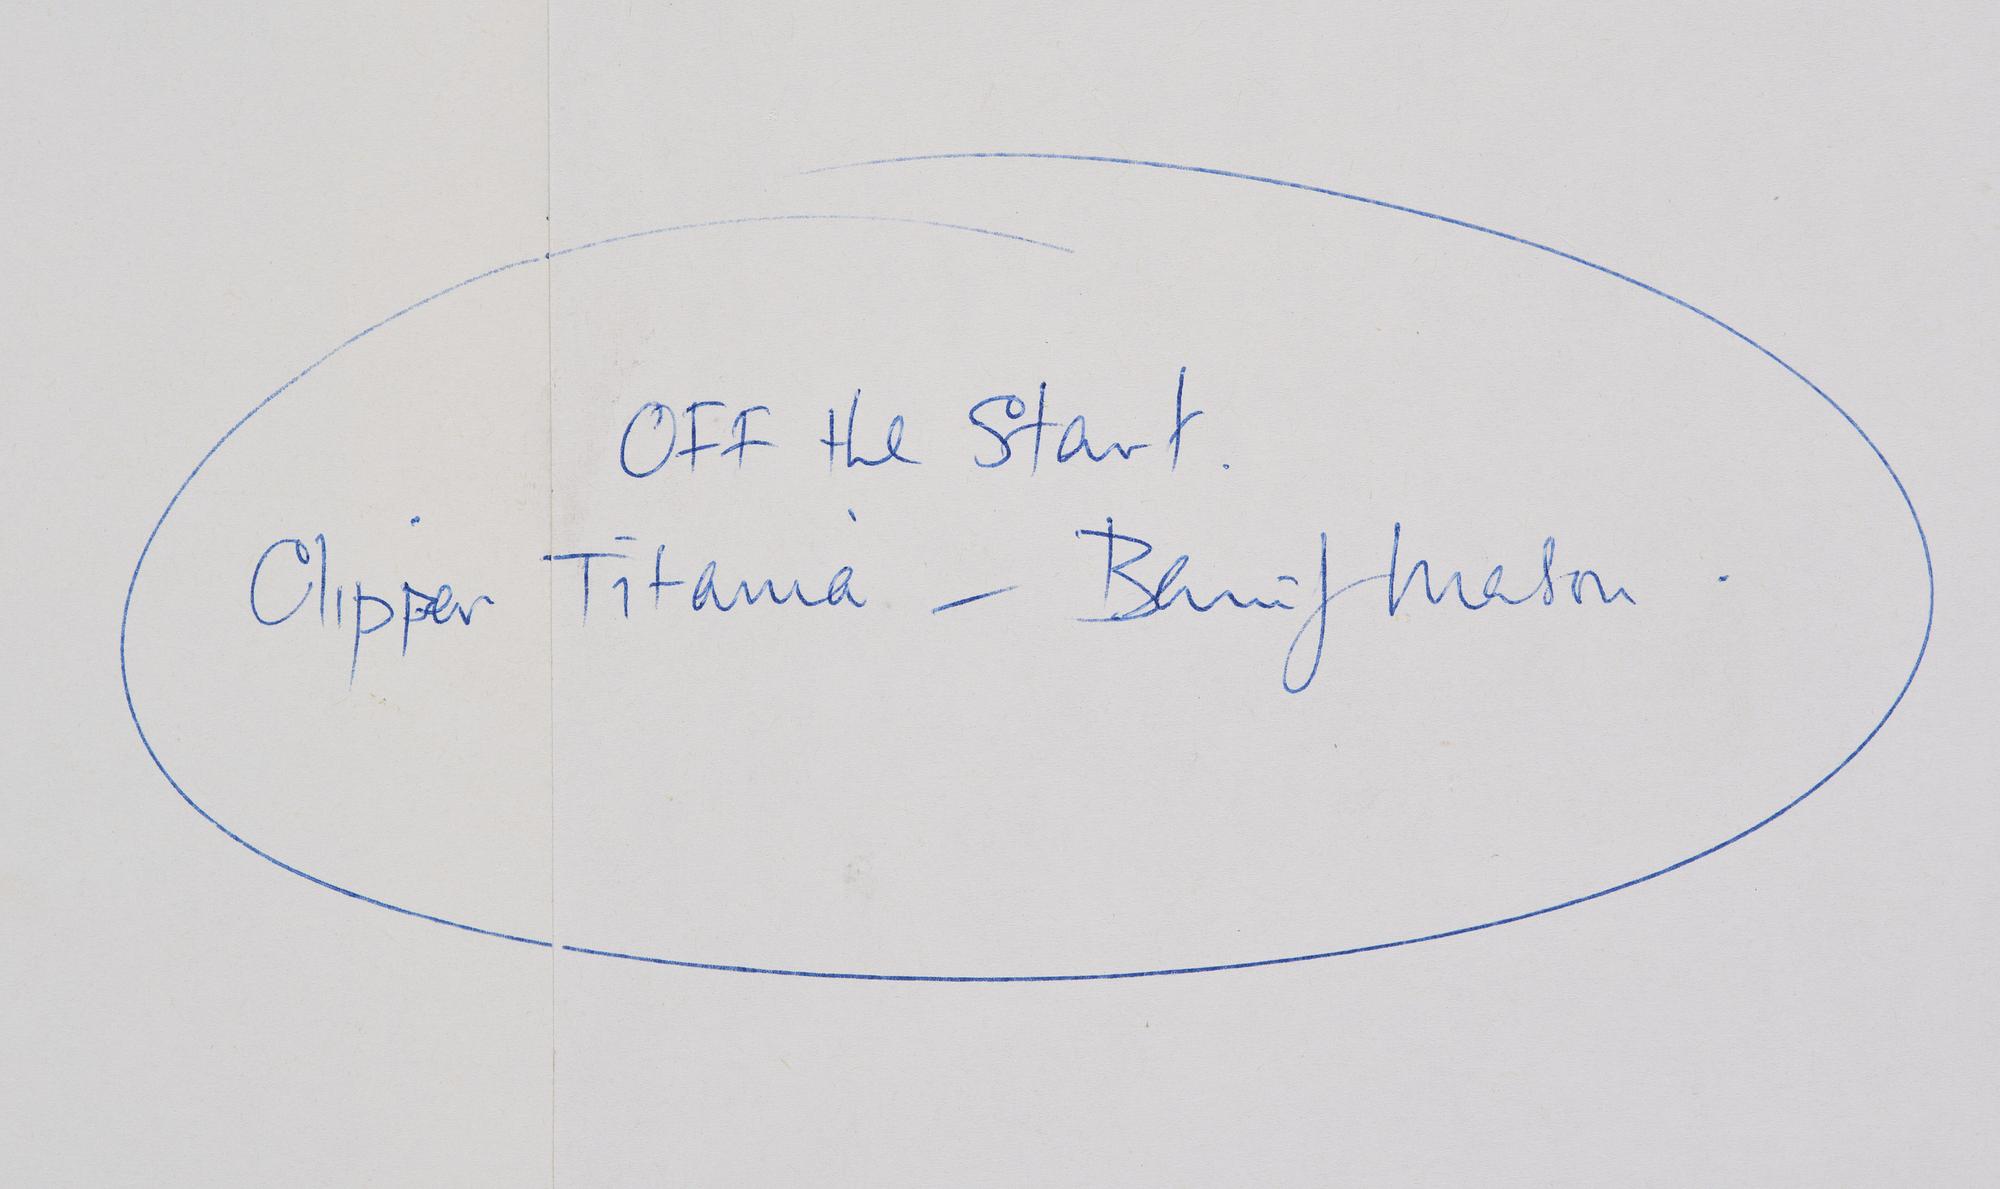 OFF the Start.
Clipper Titania – Barry Mason.